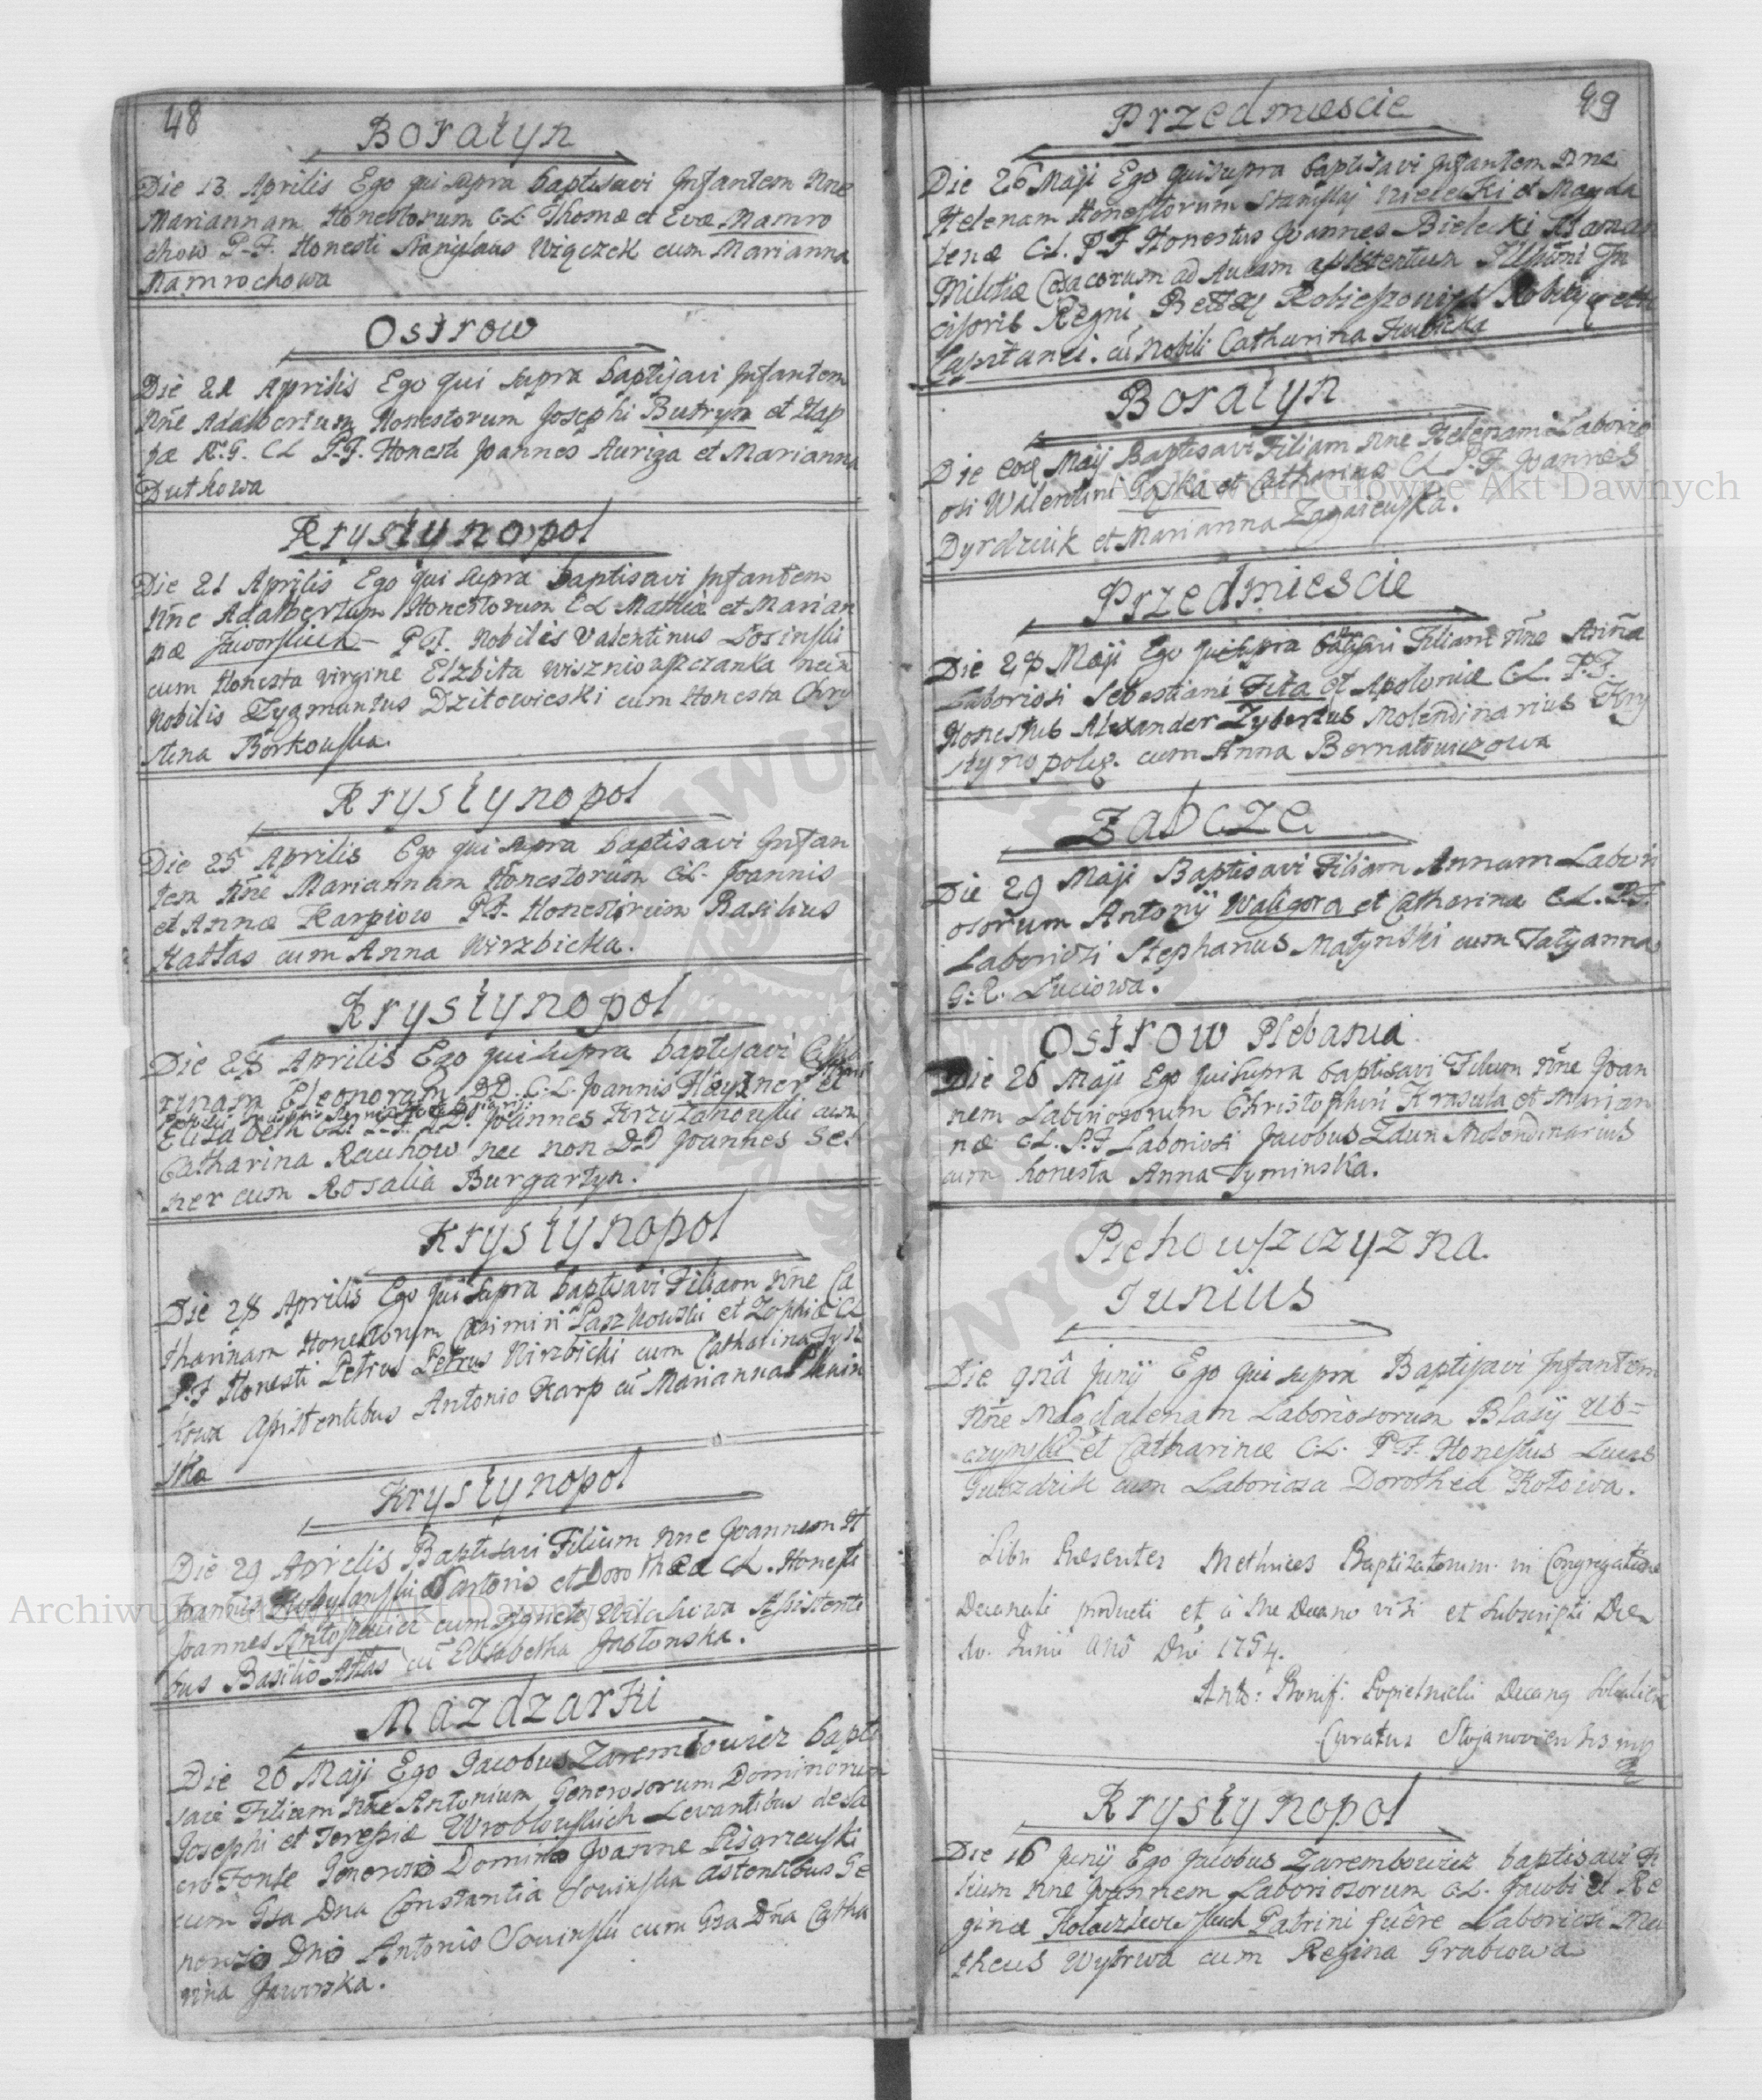 48
Boratyn
Die 13 Aprilis Ego qui supra baptisavi Infantem Nne
Mariannam Honestorum C.L. Thomæ et Evæ Mamro
chow P.F. Honesti Stanislaus Wiączek cum Marianna
Mamrochowa
Ostrow
Die 21 Aprilis Ego qui supra baptisavi Infantem
Nne Adalbertum Honestorum Josephi Butryn et Hap
pæ R.G. CL P.F. Honesti Joannes Auriga et Marianna
Dutkowa
Krystynopol
Die 21 Aprilis Ego qui supra baptisavi Infantem
Nne Adalbertum Honestorum CL Mathiæ et Marian
næ Jaworskich P.F. Nobilis Valentinus Łosinski
cum Honesta virgine Elzbita Wiszniowszczanka
Nobilis Zygmuntus Dzitowieski cum Honesta Chry
stina Borkowska.
Krystynopol
Die 25 Aprilis Ego qui supra baptisavi Infan
tem Nne Mariannam Honestorum CL. Joannis
et Annæ Karpiow P.F. Honestorum Basilius
Hattas cum Anna Wirzbicka.
Krystynopol
Die 28 Aprilis Ego qui supra baptisavi
Eleonoram DD. C.L. Joannis et
Elisabeth CL. P.F. D. Joannes Krzyżanowski cum
Catharina Rauhow nec non DD Joannes Sel
ner cum Rosalia Burgartyn.
Krystynopol
Die 28 Aprilis Ego qui supra baptisavi Filiam Nne Ca
tharinam Honestorum Casimiri Paszkowski et Zophiæ CL
P.F Honesti Petrus Petrus Wirzbicki cum Catharina
kowa Assistentibus Antonio Karp cū Marianna
ska
Krystynopol
Die 29 Aprilis Baptisavi Filium Nne Joannem H
Joannis Sartoris et Dorothea CL. Honesti
Joannes cum Agneta Assistenti
bus Basilio Attas cū Elisabetha Jabłonska.
Mazdzarki
Die 20 Maji Ego Jacobus Zarembowicz bapti
savi Filium Nne Antonium Generosorum Dominorum
Josephi et Teressiæ Wroblewskich Levantibus de Sa
cro Fonte Generoso Domino Joanne Pisarzewski
cum Gsa Dna Constantia Sowinska Astentibus Ge
neroso Dno Antonio Sowinski cum Gsa Dna Catha
rina Jaworska.
49
Przedmiescie
Die 26 Maji Ego qui supra baptisavi Infantem Nne
Helenam Honestorum Stanislaj Bielecki et Magda
lenæ C.L. P.F Honestus Joannes Bielecki
Militiæ Cosacorum ad Aulam assistentium Illustrimi In
cisoris Regni
Capitanei. cū Nobili Catharina
Boratyn
Die Maij Baptisavi Filiam Nne Helenam Laborio
osi Walentini Paska et Catharinæ CL P.F. Joannes
Dyrdziuk et Marianna Zagaiewska.
Przedmiescie
Die 28 Maji Ego qui supra baptisavi Filiam Nne Anna
Laboriosi Sebestiani Fita et Apoloniæ C.L. P.F.
Honestus Alexander Zybertus Molendinarius Kry
stynopolis. cum Anna Bernatowiczowa
Zabcze
Die 29 Maji Baptisavi Filiam Annam Labori
osorum Antonij Waligora et Catharina C.L. P.F.
Laboriosi Stephanus Matynski cum Tatyanna
G.R. Luciowa.
Ostrow Plebania
Die 26 Maji Ego qui supra baptisavi Filium Nne Joan
nem Laboriosorum Christophori Krasula et Marian
næ CL. P.F Laboriosi Jacobus Zdun Molendinarius
cum honesta Anna Tyminska.
Piehowszczyzna.
Junius
Die 9na Junij Ego qui supra Baptisavi Infantem
Nne Magdalenam Laboriosorum Blasij Ub=
czynski et Catharinæ C.L. P.F. Honestus Lucas
Guzdzik cum Laboriosa Dorothea Kotowa.
Libri Præsentes Methrices Baptizatorum in Congregatione
Decanali producti et à me Decano visi et subscripti Die
Junii Anō Dni 1754.
Anto: Bonif: Popietnicki Decang
Curatus Stojanoviensis mp
Krystynopol
Die 16 Junij Ego Jacobus Zarembowicz baptisavi Fi
lium Nne Joannem Laboriosorum CL. Jacobi et Re
ginæ Patrini fuêre Laboriosi Ma
theus Wytrwa cum Regina Grabowa
Archiwum Główne Akt Dawnych
Archiwum Główne Akt Dawnych